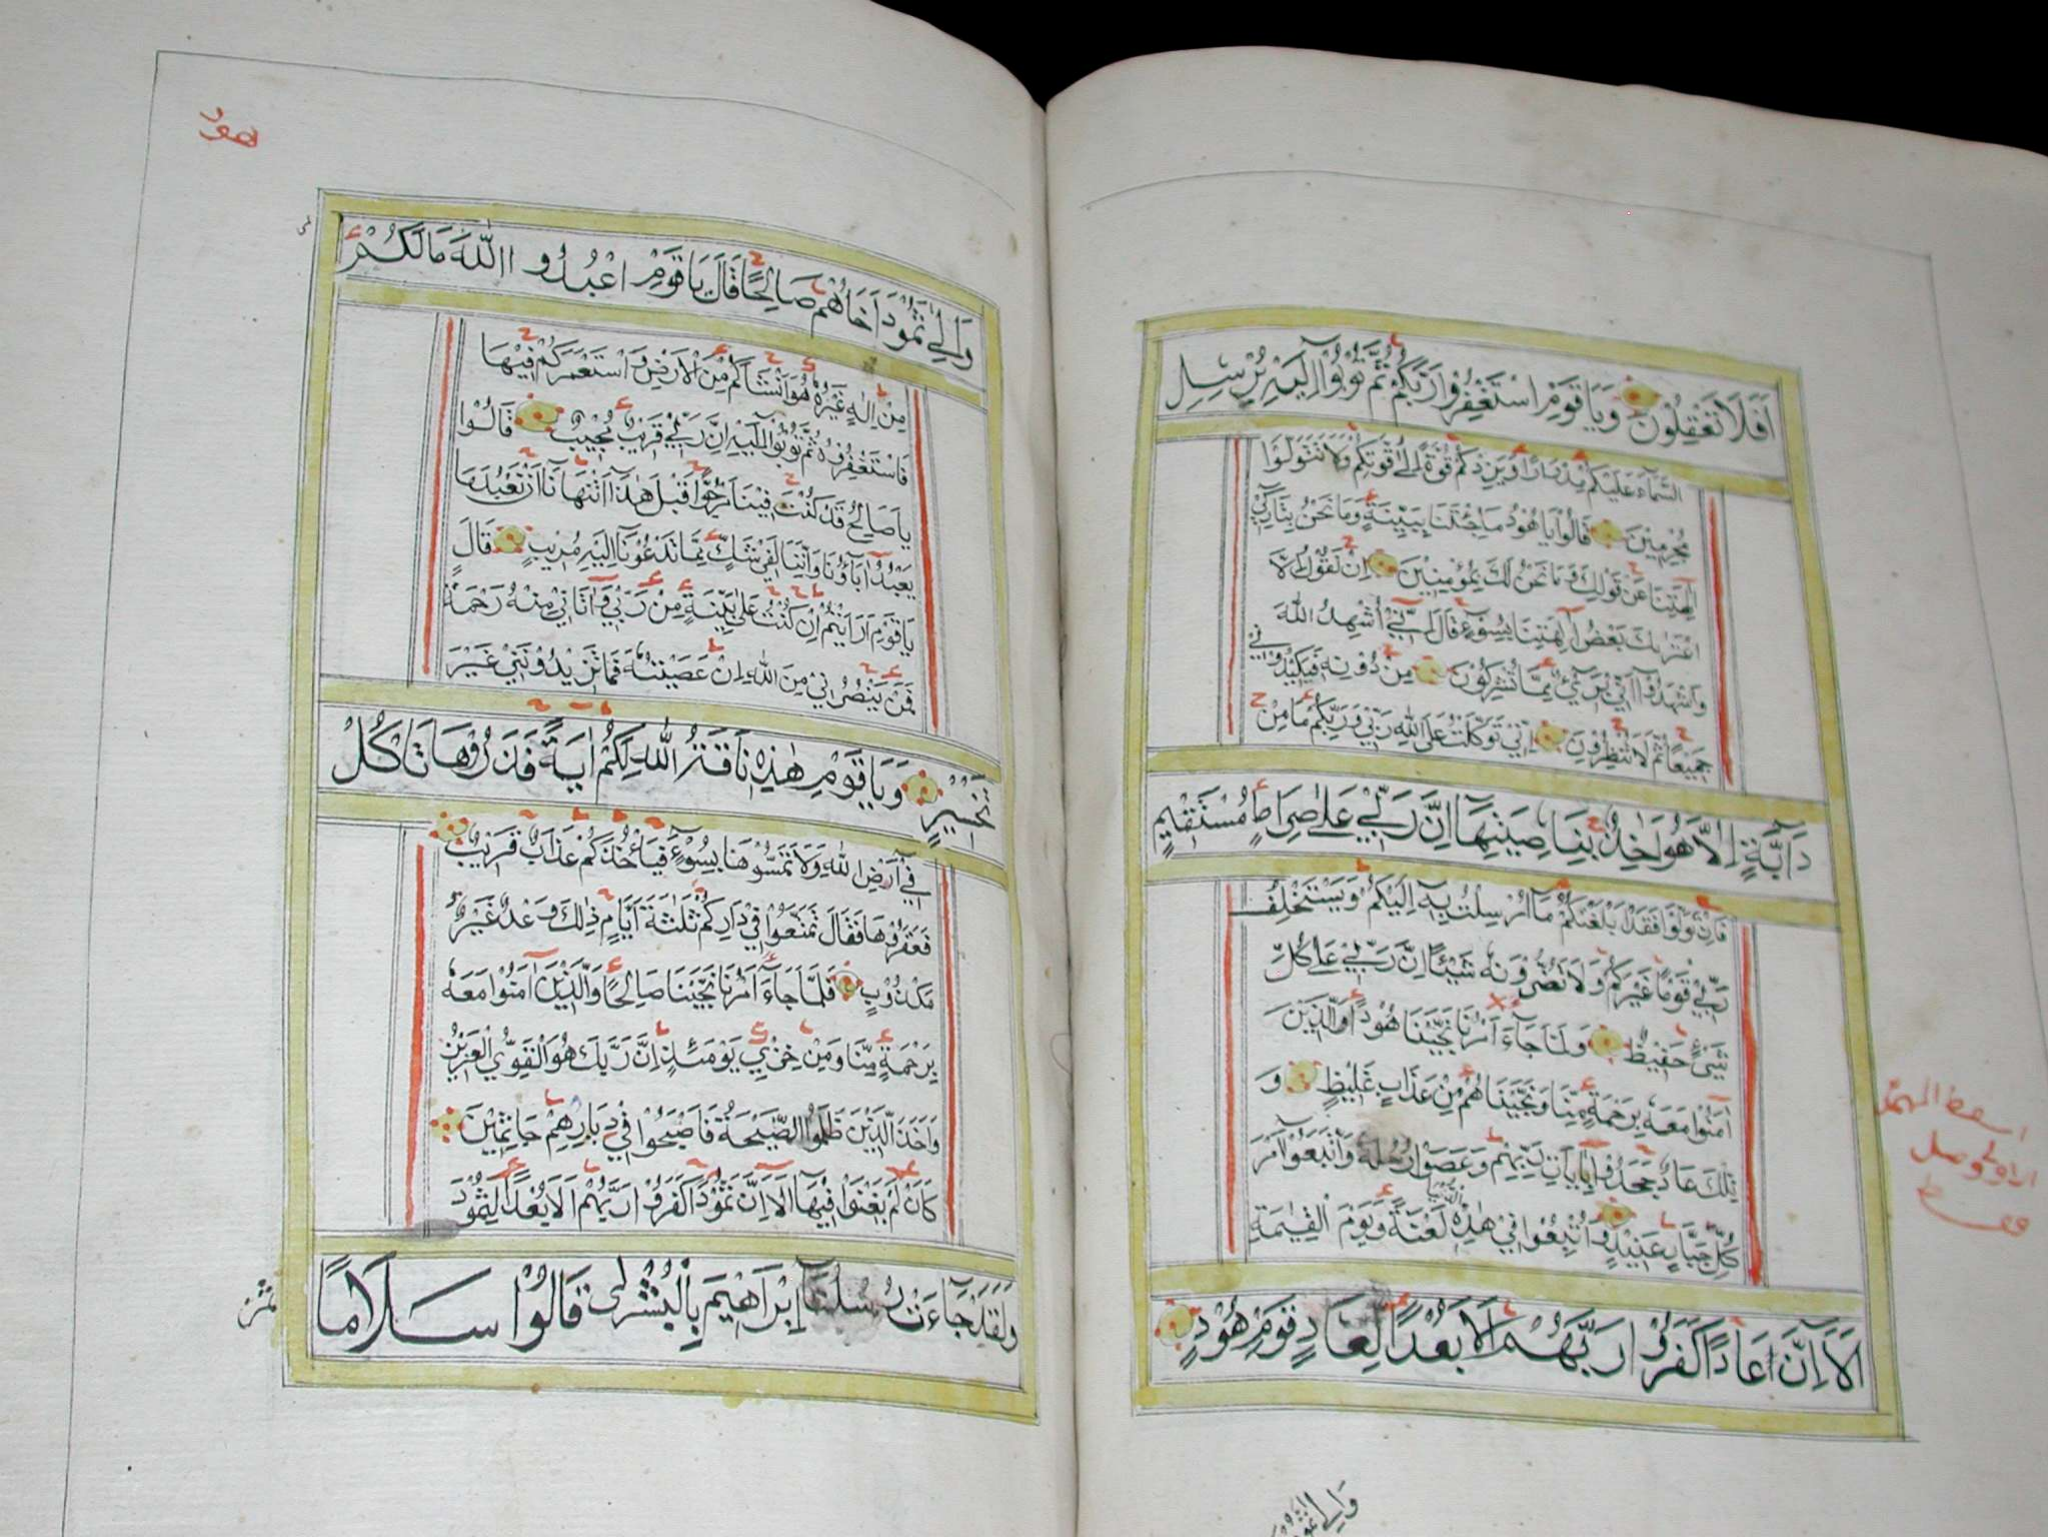 اَفَلَا تَعْقِلُونَ وَيَا قَوْمِ اسْتَغْفِرُوا رَبَّكُمْ ثُمَّ تُوبُوا اِلَيْهِ يُرْسِلِ
السَّمَاءَ عَلَيْكُمْ مِدْرَارًا وَيَزِدْكُمْ قُوَّةً اِلَى قُوَّتِكُمْ وَلَا تَتَوَلَّوْا
مُجْرِمِينَ قَالُوا يَا هُودُ مَا جِئْتَنَا بِبَيِّنَةٍ وَمَا نَحْنُ بِتَارِكِي
اٰلِهَتِنَا عَنْ قَوْلِكَ وَمَا نَحْنُ لَكَ بِمُؤْمِنِينَ اِنْ نَقُولُ اِلَّا
اعْتَرٰيكَ بَعْضُ اٰلِهَتِنَا بِسُوءٍ قَالَ اِنِّي أُشْهِدُ اللّٰهَ
وَاشْهَدُوا اَنِّي بَرِيءٌ مِمَّا تُشْرِكُونَ مِنْ دُونِهِ فَكِيدُونِي
جَمِيعًا ثُمَّ لَا تُنْظِرُونِ اِنِّي تَوَكَّلْتُ عَلَى اللّٰهِ رَبِّي وَرَبِّكُمْ مَا مِنْ
دَابَّةٍ اِلَّا هُوَ اٰخِذٌ بِنَاصِيَتِهَا اِنَّ رَبِّي عَلٰى صِرَاطٍ مُسْتَقِيمٍ
فَاِنْ تَوَلَّوْا فَقَدْ بَلَّغْتُكُمْ مَا اُرْسِلْتُ بِهِ اِلَيْكُمْ وَيَسْتَخْلِفُ
رَبِّي قَوْمًا غَيْرَكُمْ وَلَا تَضُرُّونَهُ شَيْئًا اِنَّ رَبِّي عَلٰى كُلِّ
شَيْءٍ حَفِيظٌ وَلَمَّا جَاءَ اَمْرُنَا نَجَّيْنَا هُودًا وَالَّذِينَ
اٰمَنُوا مَعَهُ بِرَحْمَةٍ مِنَّا وَنَجَّيْنَاهُمْ مِنْ عَذَابٍ غَلِيظٍ وَ
تِلْكَ عَادٌ جَحَدُوا بِاٰيَاتِ رَبِّهِمْ وَعَصَوْا رُسُلَهُ وَاتَّبَعُوا اَمْرَ
كُلِّ جَبَّارٍ عَنِيدٍ وَاُتْبِعُوا فِي هٰذِهِ الدُّنْيَا لَعْنَةً وَيَوْمَ الْقِيٰمَةِ
اَلَا اِنَّ عَادًا كَفَرُوا رَبَّهُمْ اَلَا بُعْدًا لِعَادٍ قَوْمِ هُودٍ
وَاِلٰى ثَمُودَ
هود
وَاِلٰى ثَمُودَ اَخَاهُمْ صَالِحًا قَالَ يَا قَوْمِ اعْبُدُوا اللّٰهَ مَا لَكُمْ
مِنْ اِلٰهٍ غَيْرُهُ هُوَ اَنْشَاَكُمْ مِنَ الْاَرْضِ وَاسْتَعْمَرَكُمْ فِيهَا
فَاسْتَغْفِرُوهُ ثُمَّ تُوبُوا اِلَيْهِ اِنَّ رَبِّي قَرِيبٌ مُجِيبٌ قَالُوا
يَا صَالِحُ قَدْ كُنْتَ فِينَا مَرْجُوًّا قَبْلَ هٰذَا اَتَنْهَانَا اَنْ نَعْبُدَ مَا
يَعْبُدُ اٰبَاؤُنَا وَاِنَّنَا لَفِي شَكٍّ مِمَّا تَدْعُونَا اِلَيْهِ مُرِيبٍ قَالَ
يَا قَوْمِ اَرَاَيْتُمْ اِنْ كُنْتُ عَلٰى بَيِّنَةٍ مِنْ رَبِّي وَاٰتَانِي مِنْهُ رَحْمَةً
فَمَنْ يَنْصُرُنِي مِنَ اللّٰهِ اِنْ عَصَيْتُهُ فَمَا تَزِيدُونَنِي غَيْرَ
تَخْسِيرٍ وَيَا قَوْمِ هٰذِهِ نَاقَةُ اللّٰهِ لَكُمْ اٰيَةً فَذَرُوهَا تَاْكُلْ
فِي اَرْضِ اللّٰهِ وَلَا تَمَسُّوهَا بِسُوءٍ فَيَأْخُذَكُمْ عَذَابٌ قَرِيبٌ
فَعَقَرُوهَا فَقَالَ تَمَتَّعُوا فِي دَارِكُمْ ثَلٰثَةَ اَيَّامٍ ذٰلِكَ وَعْدٌ غَيْرُ
مَكْذُوبٍ فَلَمَّا جَاءَ اَمْرُنَا نَجَّيْنَا صَالِحًا وَالَّذِينَ اٰمَنُوا مَعَهُ
بِرَحْمَةٍ مِنَّا وَمِنْ خِزْيِ يَوْمَئِذٍ اِنَّ رَبَّكَ هُوَ الْقَوِيُّ الْعَزِيزُ
وَاَخَذَ الَّذِينَ ظَلَمُوا الصَّيْحَةُ فَاَصْبَحُوا فِي دِيَارِهِمْ جَاثِمِينَ
كَاَنْ لَمْ يَغْنَوْا فِيهَا اَلَا اِنَّ ثَمُودًا كَفَرُوا رَبَّهُمْ اَلَا بُعْدًا لِثَمُودَ
وَلَقَدْ جَاءَتْ رُسُلُنَا اِبْرَاهِيمَ بِالْبُشْرٰى قَالُوا سَلَامًا